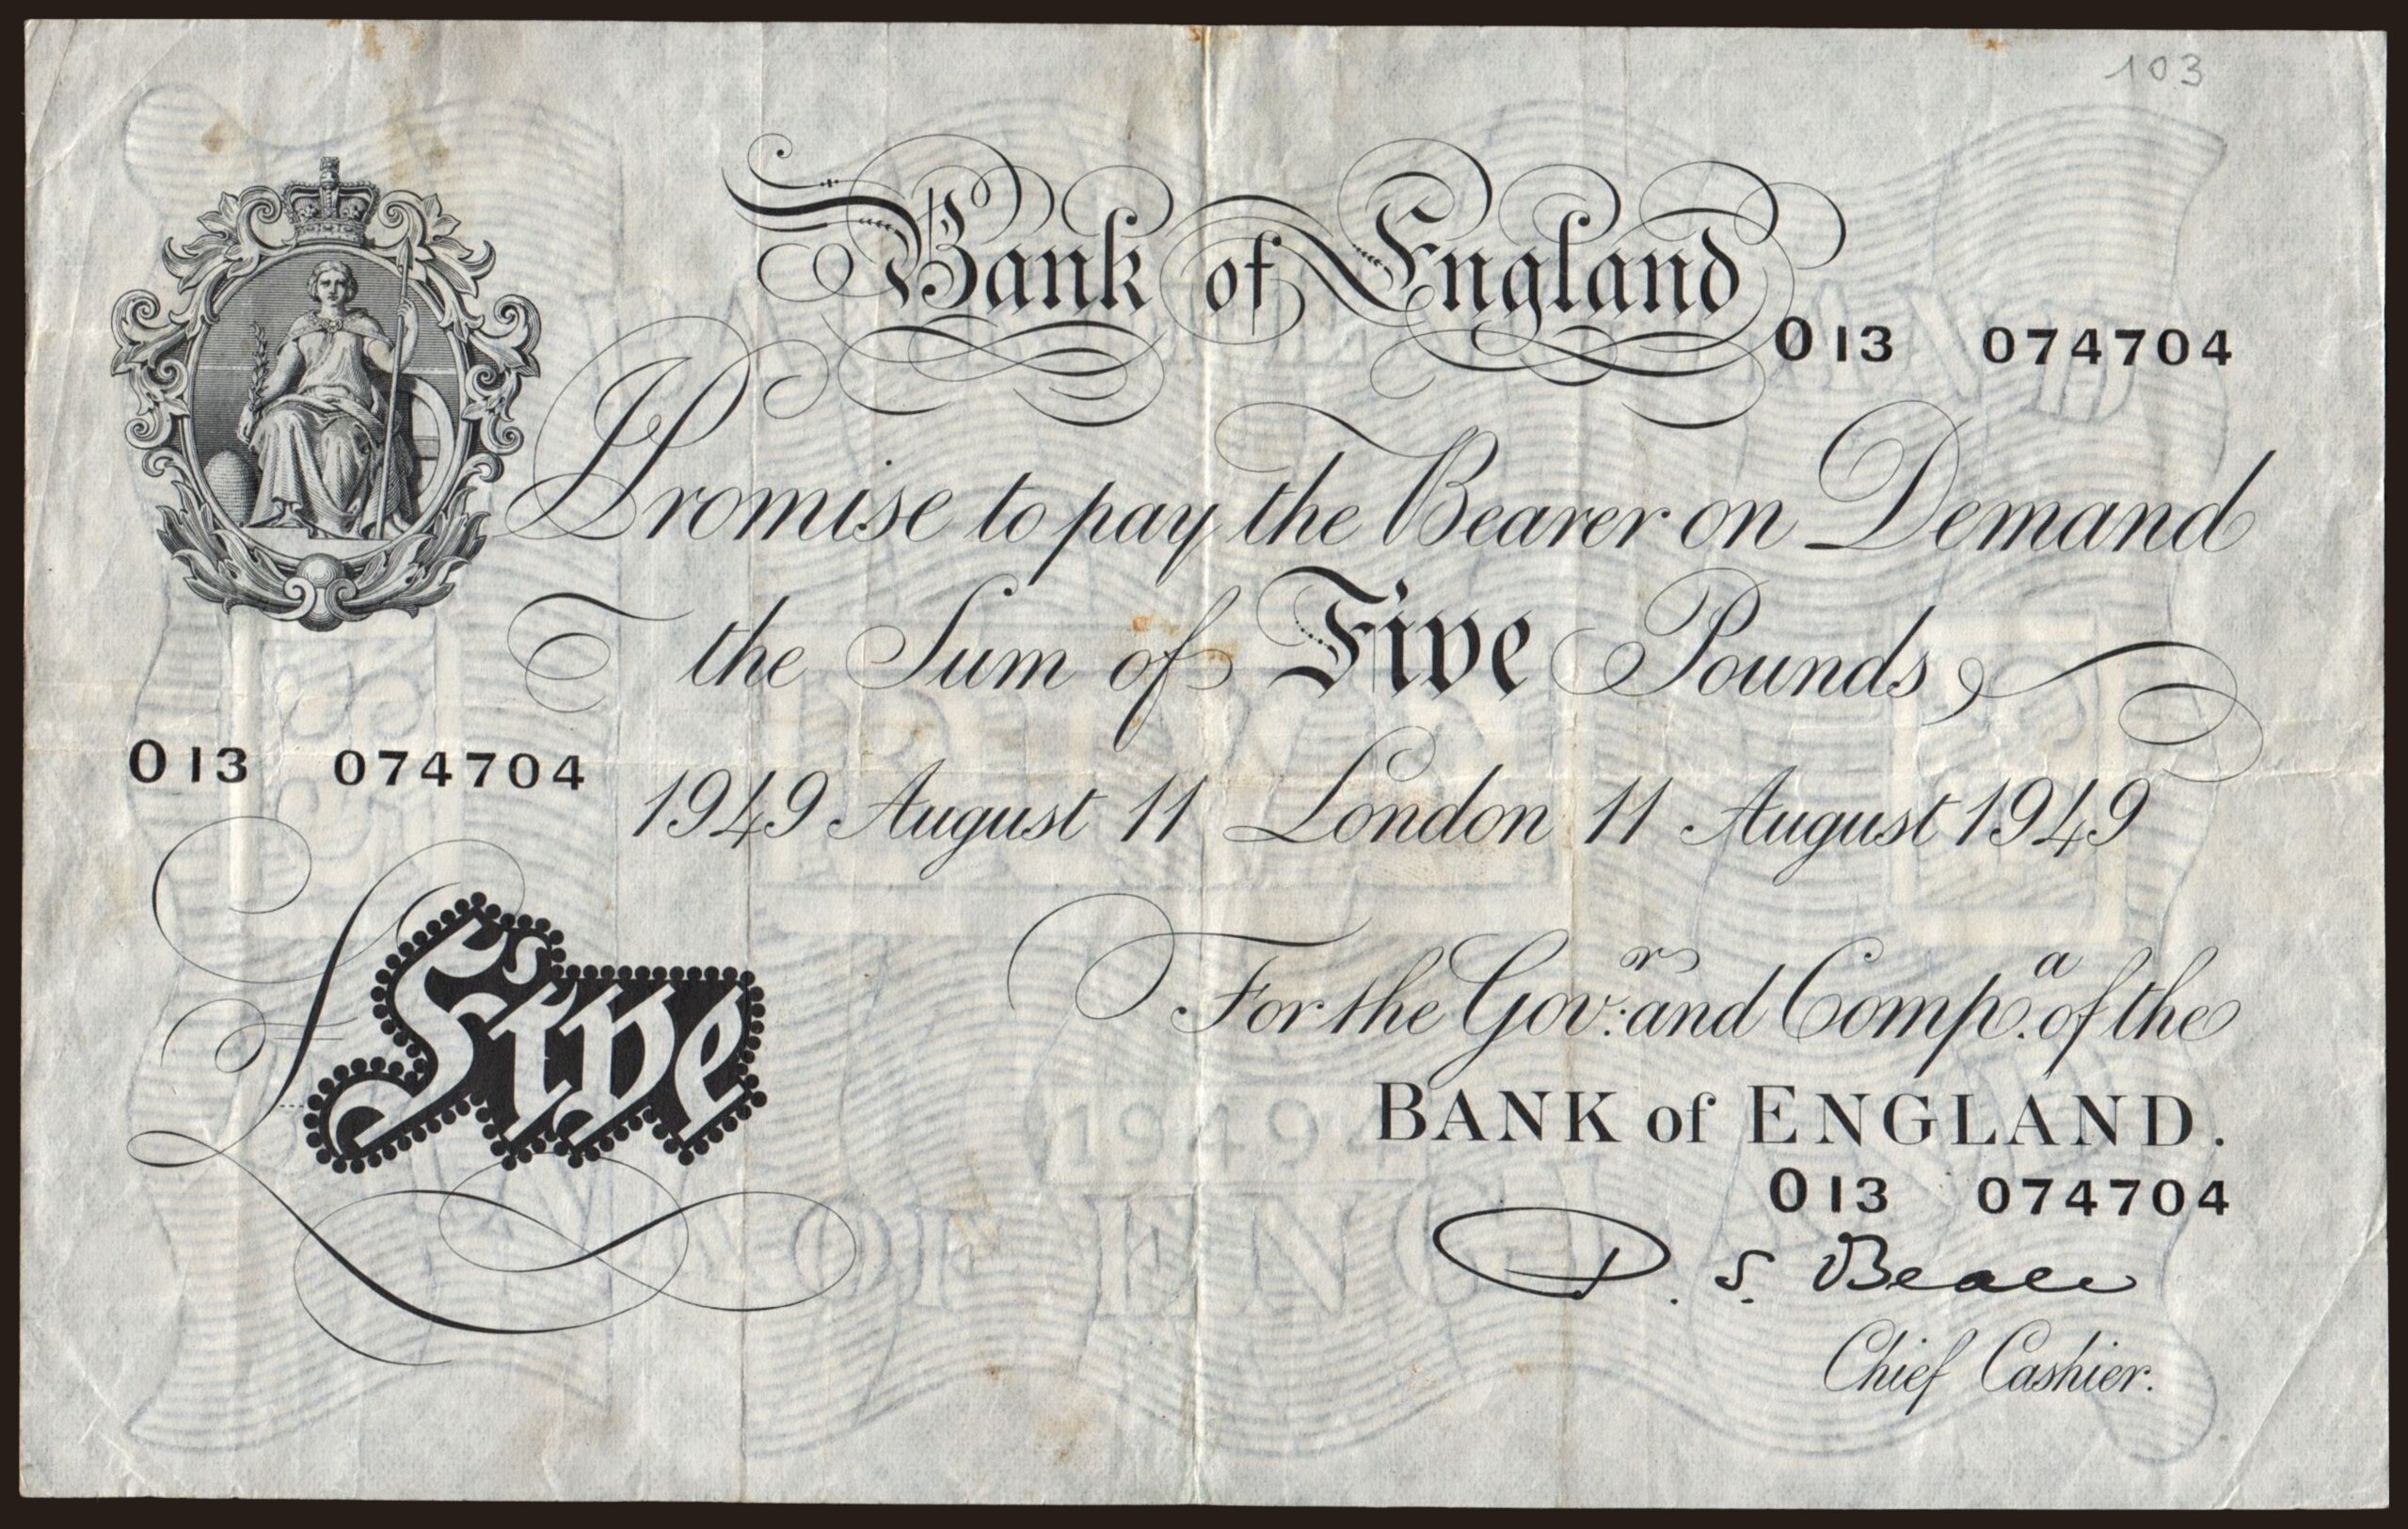 103
Bank of England
O13 074704
I Promise to pay the Bearer on Demand
the Sum of Five Pounds
O13 074704
1949 August 11 London 11 August 1949
For the Gov.r and Comp.a of the
BANK of ENGLAND.
£Five
O13 074704
P. S. Beale
Chief Cashier.